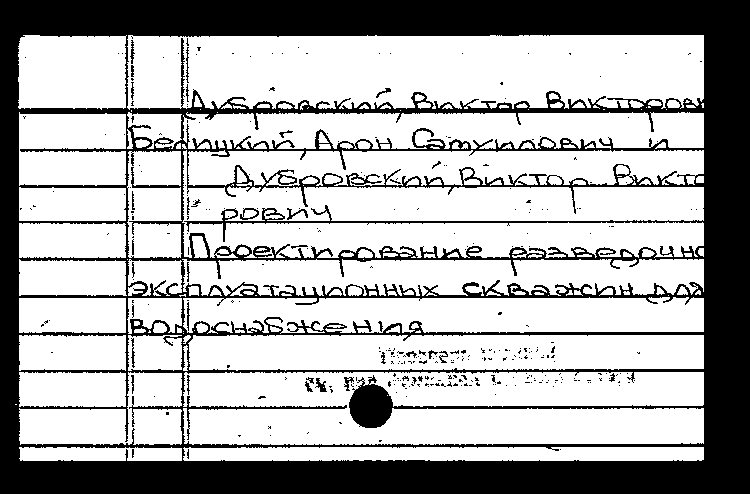 Дубровский, Виктор Викторови
Белицкий, Арон Самуилович и
Дубровский, Виктор Викто
рович
Проектирование разведочно
эксплуатационных скважин для
водоснабжения